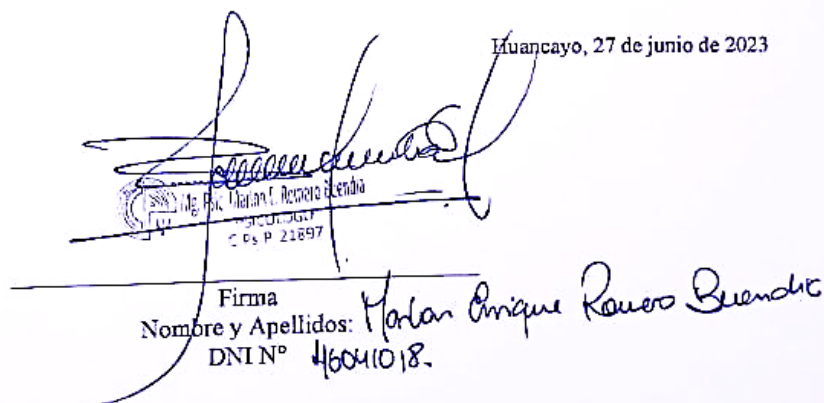 Huancayo, 27 de junio de 2023
Mg. Psic. Marlan E. Romero Buendia
PSICOLOGO
C.Ps.P. 21897
Firma
Nombre y Apellidos: Marlan Enrique Romero Buendia
DNI N° 46041018.